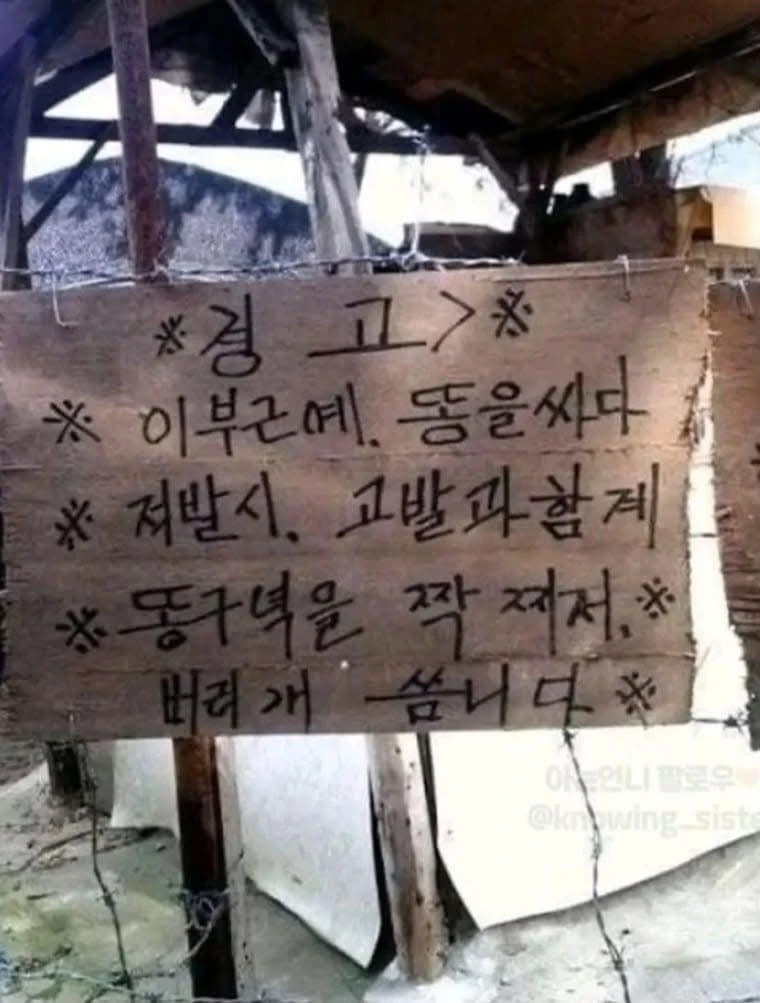 ※경 고>※
※ 이부근예. 똥을싸다
※ 져발시. 고발과함계
※똥구녁을 짝 찌저.※
버리개 씀니다※
아는언니 팔로우♥
@knowing_siste